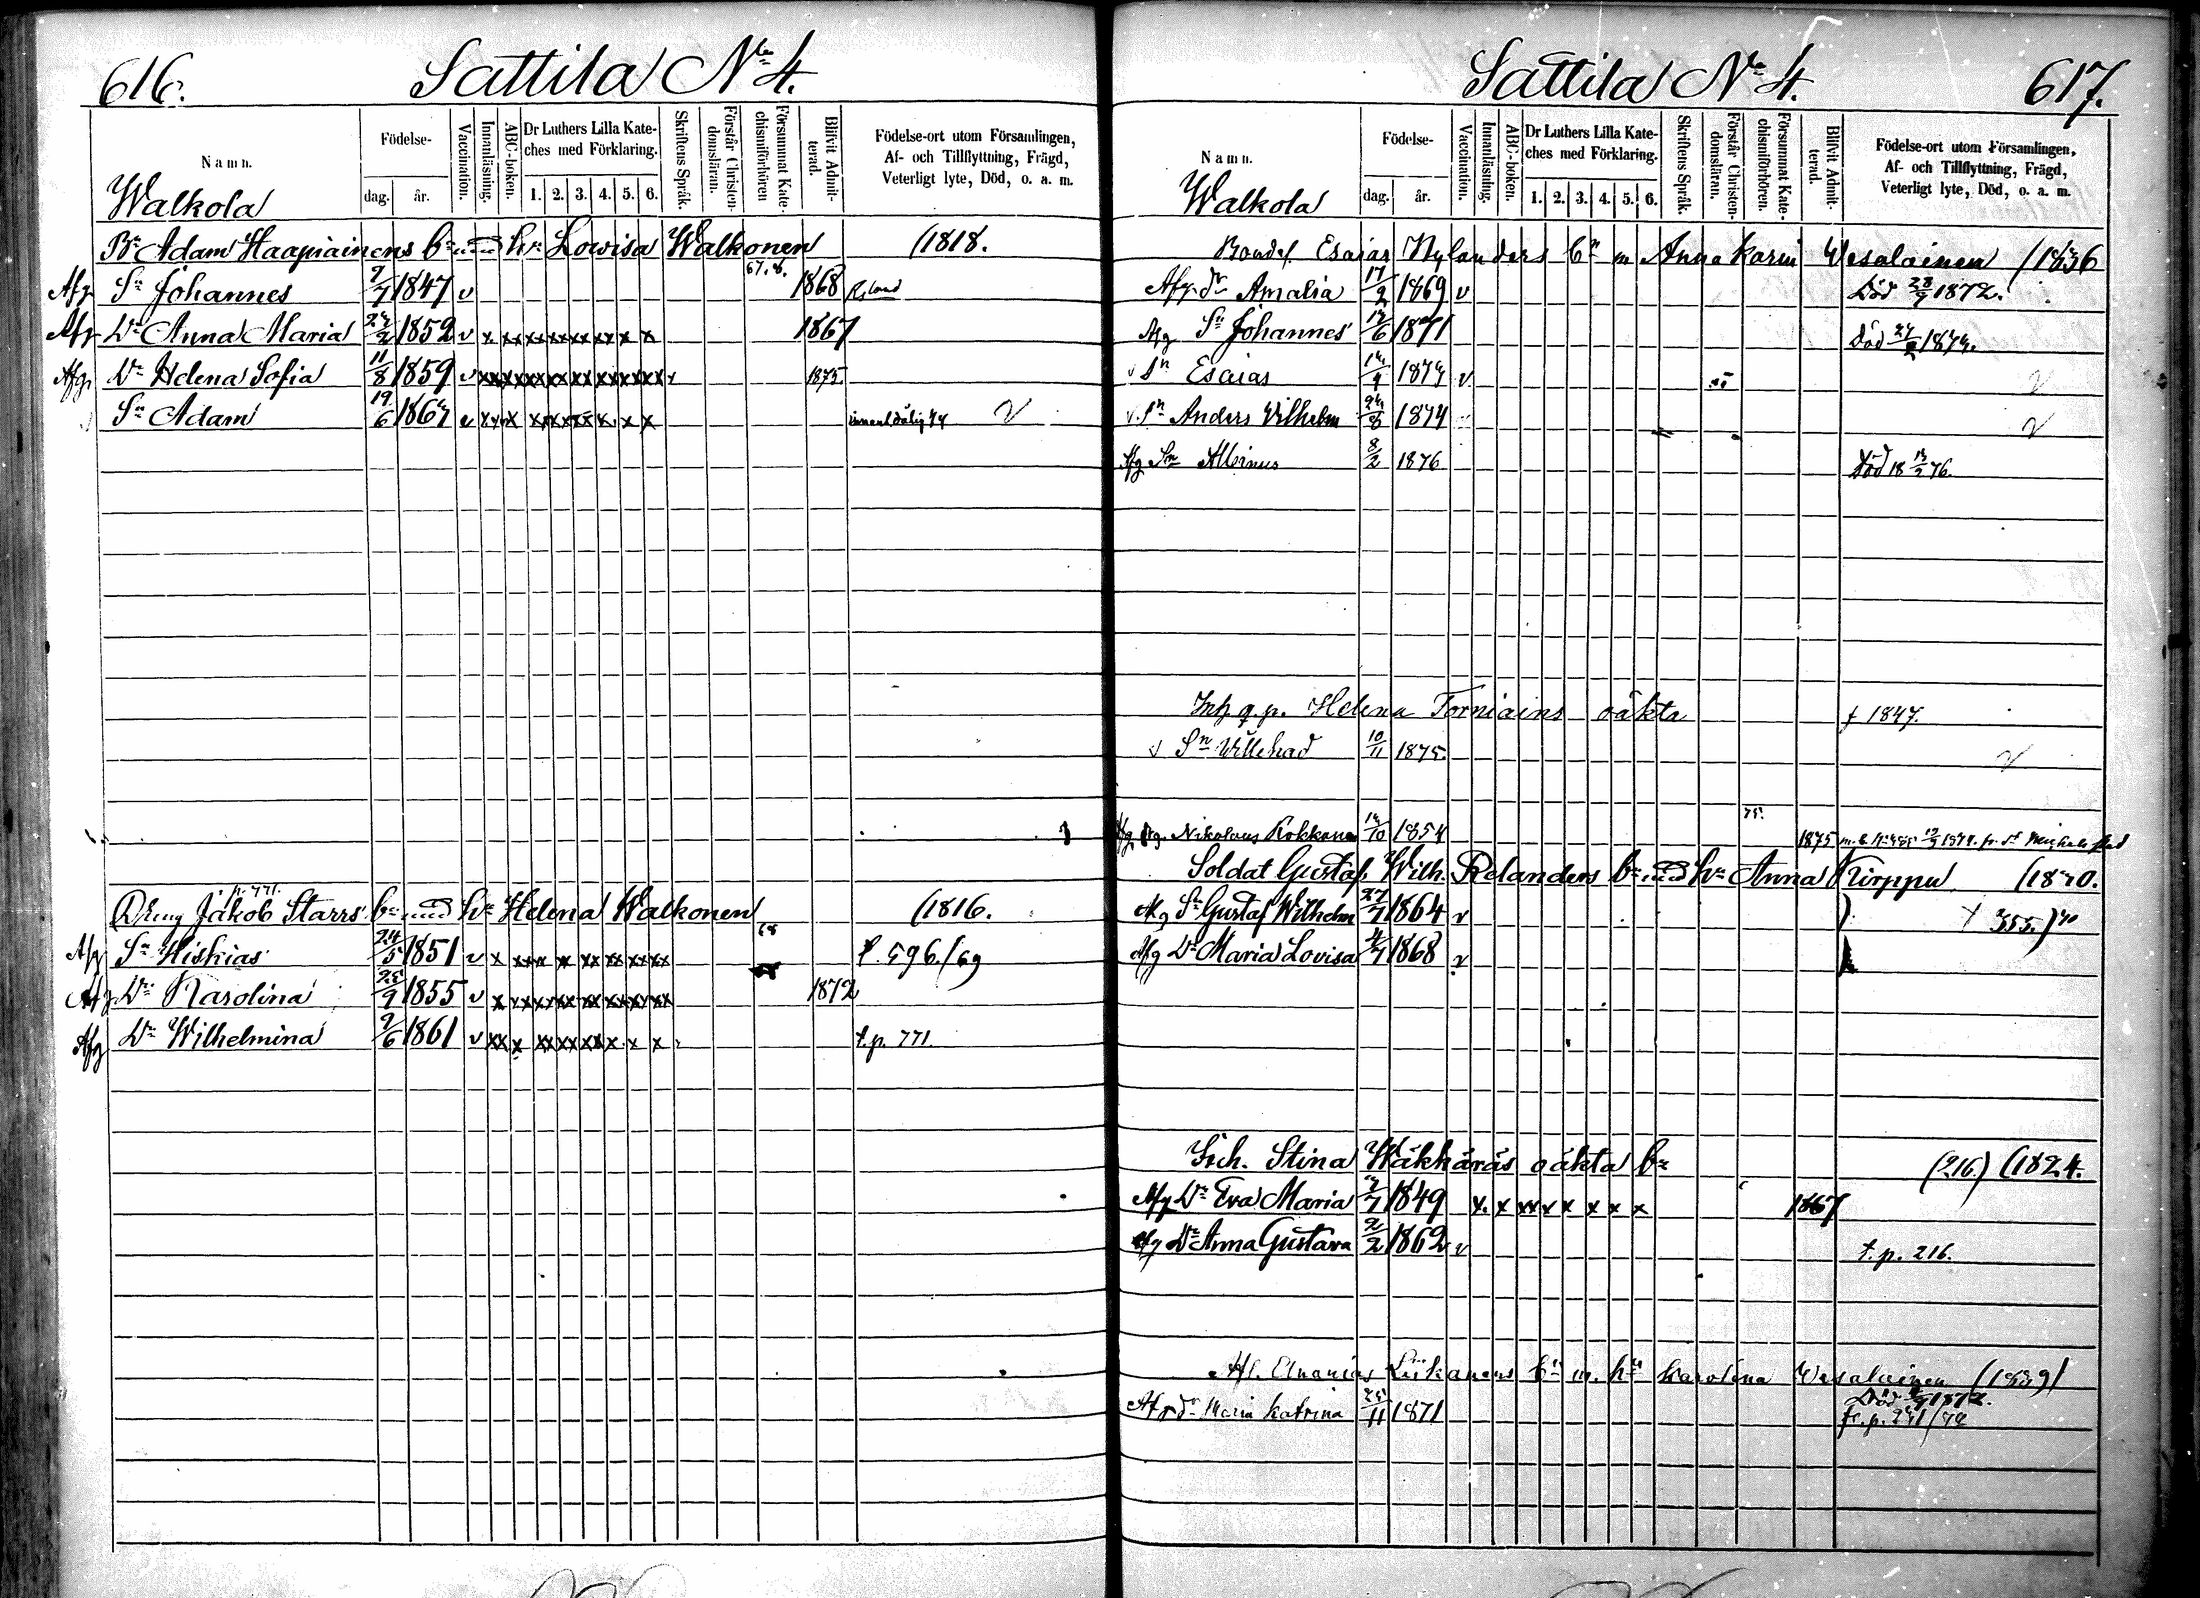 616.
Sattila No 4.
Namn.
Födelse-
dag.
år.
Vaccination.
Innanläsning.
ABC-boken.
Dr Luthers Lilla Kate-
ches med Förklaring.
1. 2. 3. 4. 5. 6.
Skriftens Språk.
Förstår Christen-
domsläran.
Försummat Kate-
chismiförhören
Blifvit Admit-
terad.
Födelse-ort utom Församlingen,
Af- och Tillflyttning, Frägd,
Veterligt lyte, Död, o. a. m.
Walkola
Bn Adam Haapiainens bn med hu Lowisa Walkonen (1818.
67. 8.
Afg Sn Johannes 9/7 1847 v 1868
Afg Dr Anna Maria 1852 v x xx xx xx xx xx x x 1867
Afg. Dr Helena Sofia 11/8 1859 v 1875.
Sn Adam 19/6 1867 v V
p. 771.
Dreng Jakob Starrs bn med hu Helena Walkonen (1816.
68
Afg Sn Hiskias 24/5 1851 v p. 596./69
Afg Dr Karolina 25/9 1855 v 1872
Afg Dr Wilhelmina 9/6 1861 v t.p. 771.
Sattila No 4.
617.
Namn.
Födelse-
dag.
år.
Vaccination.
Innanläsning.
ABC-boken.
Dr Luthers Lilla Kate-
ches med Förklaring.
1. 2. 3. 4. 5. 6.
Skriftens Språk.
Förstår Christen-
domsläran.
Försummat Kate-
chismiförhören.
Blifvit Admit-
terad.
Födelse-ort utom Församlingen,
Af- och Tillflyttning, Frägd,
Veterligt lyte, Död, o. a. m.
Walkola
Bondef. Esaias Nylanders bn m Anna Karin Wesalainen (1836
Afg. dr Amalia 17/2 1869 v Död 28/9 1872.
Afg Sn Johannes 12/6 1871 Död 1874.
v Sn Esaias 1874 v V
v. Sn Anders Vilhelm 24/8 1874 V
Afg Sn Albinus 8/2 1876 Död 18 13/2 76.
Inh. q.p. Helena Torniains oäkta f 1847.
v Sn Villehad 10/11 1875. V
75.
Afg Drg. Nikolaus Kokkonen 14/10 1854 1875 fr. St Michels stad
Soldat Gustaf Wilh. Relanders bn med hu Anna Kirppu (1840.
Afg Sn Gustaf Wilhelm 27/7 1864 v 355.) 70
Afg Dr Maria Lovisa 4/7 1868 v
Inh. Stina Häkkäräs oäkta bn (216) (1824.
Afg Dr Eva Maria 2/7 1849 x. x xx x x x x x 1867
Afg Dr Anna Gustava 2/2 1862 v t.p. 216.
Af. Ananias Liikanens bn m. hu Karolina Wesalainen (1839)
Afg dr Maria Katrina 25/11 1871 Död 1872.